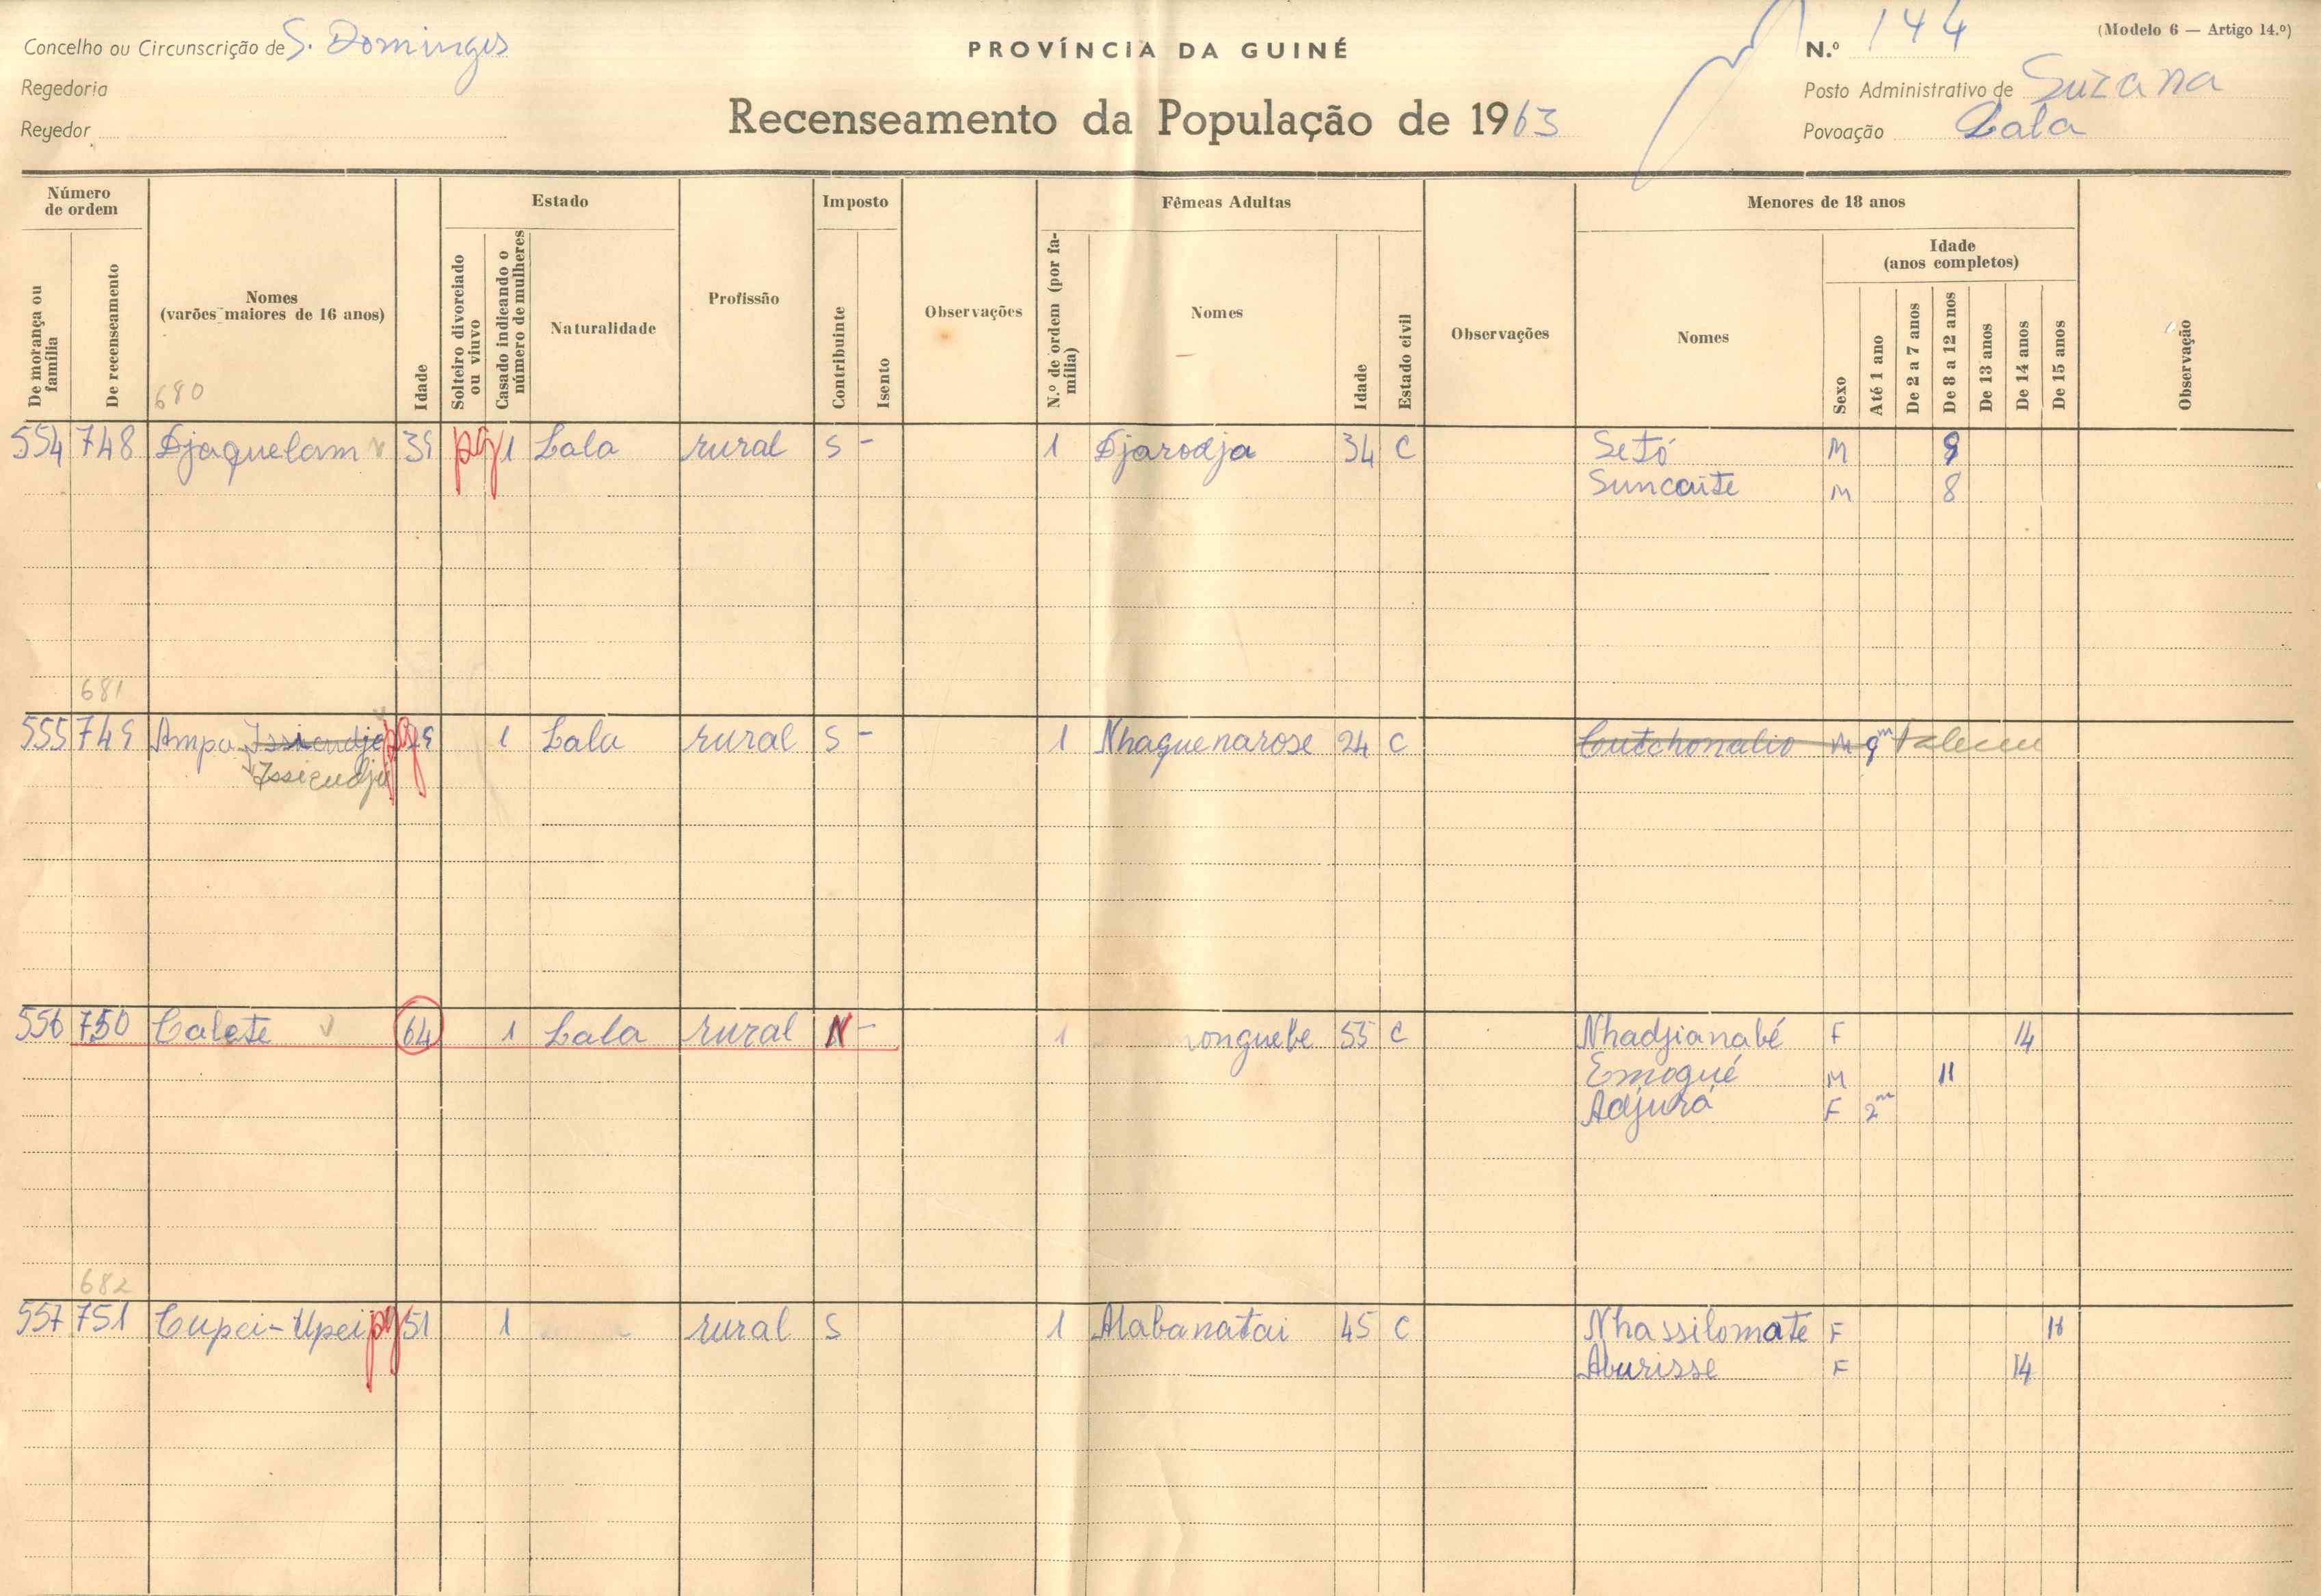 Concelho ou Circunscrição de S. Domingos
PROVÍNCIA DA GUINÉ
N.º 144
(Modelo 6 — Artigo 14.º)
Regedoria
Posto Administrativo de Suzana
Regedor
Recenseamento da População de 1963
Povoação Lala
Número de ordem
Estado
Imposto
Fêmeas Adultas
Menores de 18 anos
De morança ou família
De recenseamento
Nomes (varões maiores de 16 anos)
Idade
Solteiro divorciado ou viuvo
Casado indicando o número de mulheres
Naturalidade
Profissão
Contribuinte
Isento
Observações
N.º de ordem (por família)
Nomes
Idade
Estado civil
Observações
Nomes
Sexo
Idade (anos completos)
Até 1 ano
De 2 a 7 anos
De 8 a 12 anos
De 13 anos
De 14 anos
De 15 anos
Observação
680
554 748 Djaquelam 39 pg 1 Lala rural S - 1 Djarodja 34 C Setó M 9
Suncaite M 8
681
555 749 Ampa Issicudje pg 29 1 Lala rural S - 1 Nhaquenarose 24 C Cutchonalio M 9m faleceu
Issicudju
556 750 Calete 64 1 Lala rural N - 1 onguebe 55 C Nhadjianabé F 14
Emogué M 11
Adjurá F 2m
682
557 751 Cupei-Upei pg 51 1 rural S 1 Alabanatai 45 C Nhassilomate F 16
Aburisse F 14